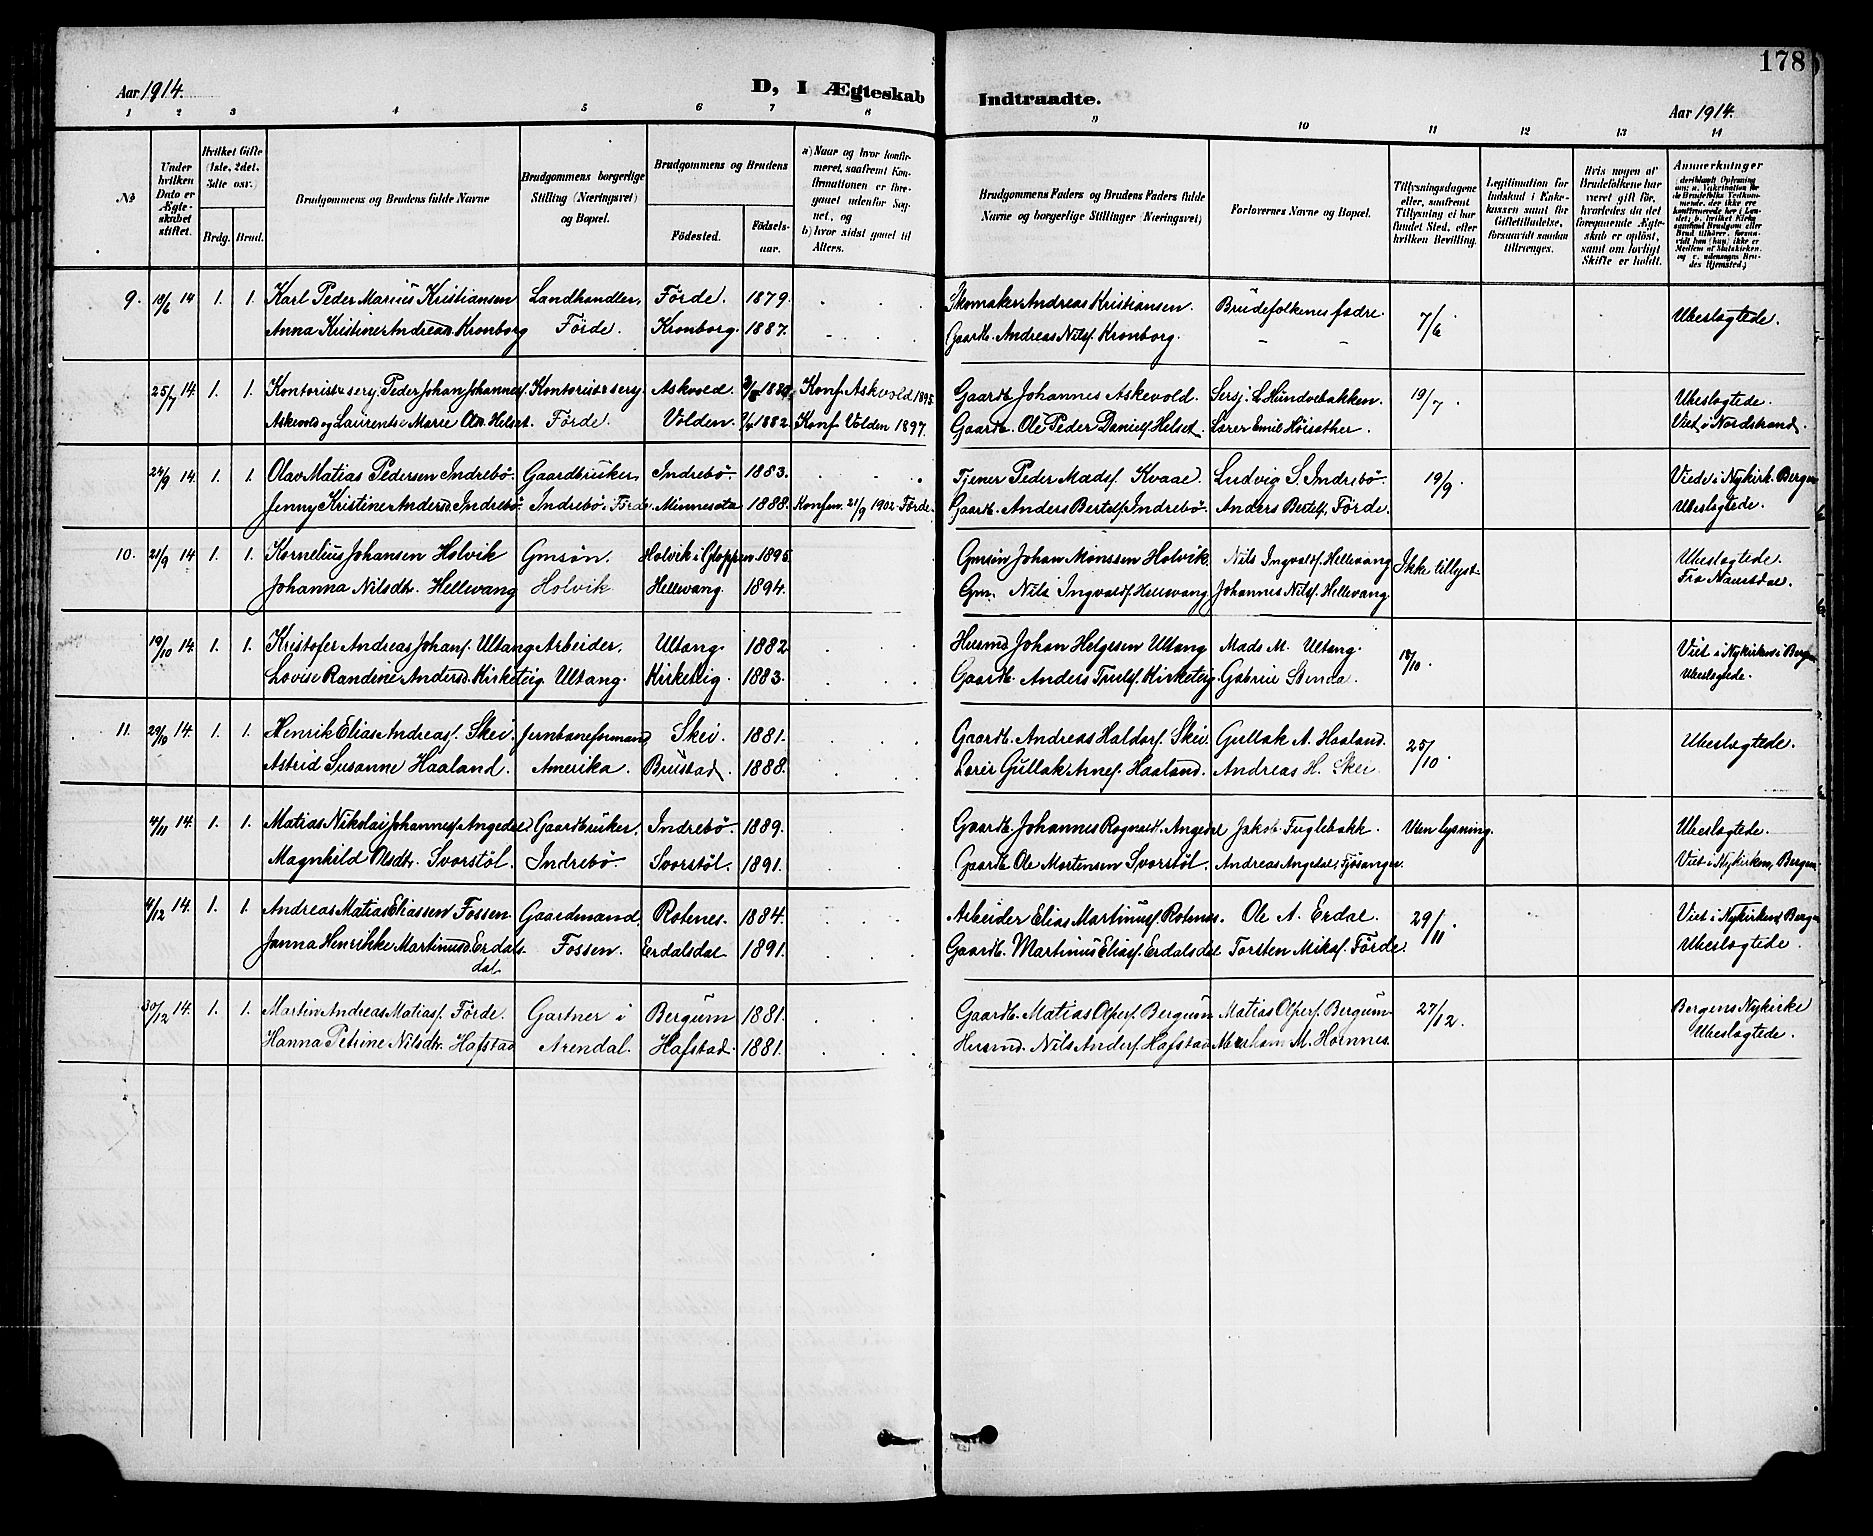 178
Aar 1914.
D, I Ægteskab Indtraadte.
Aar 1914.
1 2 3 4 5 6 7 8 9 10 11 12 13 14
No
Under hvilken Dato er Ægteskabet stiftet.
Hvilket Gifte (1ste, 2det, 3die osv.)
Brdg. Brud.
Brudgommens og Brudens fulde Navne
Brudgommens borgerlige Stilling (Næringsvei) og Bopæl.
Brudgommens og Brudens
Fødested. Fødselsaar.
a) Naar og hvor konfirmeret, saafremt Konfirmationen er foregaaet udenfor Sognet, og
b) hvor sidst gaaet til Alters.
Brudgommens Faders og Brudens Faders fulde Navne og borgerlige Stillinger (Næringsvei)
Forlovernes Navne og Bopæl.
Tillysningsdagene eller, saafremt Tillysning ei har fundet Sted, efter hvilken Bevilling.
Legitimation for Indskud i Enkekassen samt for Giftetilladelse, forsaavidt saadan tiltrænges.
Hvis nogen af Brudefolkene har været gift før, hvorledes da det foregaaende Ægteskab er opløst, samt om lovligt Skifte er holdt.
Anmerkninger
9. 13/6 14 1. 1. Karl Peder Marius Kristiansen Landhandler, Förde. 1879. Skomaker Andreas Kristiansen. Brudefolkenes fædre. 7/6. Ubeslægtede.
Anna Kristine Andreasd. Kronborg Förde. Kronborg. 1887. Gaardb. Andreas Nilsf. Kronborg. – –
25/7 14. 1. 1. Kontorist & serg. Peder Johan Johannesf. Kontorist & serg Askvold Konf. Askvold 1895. Gaardb. Johannes Askevold. Sersj. L. Hundvebakken. 19/7. Ubeslægtede.
Askevold og Laurentse Marie Helset. Förde. Volden. 1882. Konf. Volden 1897. Gaardb. Ole Peder Danielf. Helset. Lærer Emil Höisæther. Viet i Nordstrand.
24/9 14. 1. 1. Olav Matias Pedersen Indrebö. Gaardbruker Indrebö. 1883. Tjener Peder Madsf. Kvaae. Ludvig S. Indrebö. 19/9. Viede i Nykirk. Bergen
Jenny Kristine Andersd. Indrebö. Indrebö i Förde. Minnesota 1888. Konfirm. 21/9 1902 Förde. Gaardb. Anders Bertelf. Indrebö. Anders Bertelf. Förde. Ubeslægtede.
10. 21/9 14 1. 1. Kornelius Johansen Holvik Gmsön. Holvik i Gloppen 1895. Gmsön Johan Monssen Holvik. Nils Ingvaldf. Hellevang Ikke tillyst. Ubeslægtede.
Johanna Nilsdtr. Hellevang Holvik Hellevang. 1894. Gm. Nils Ingvaldf. Hellevang Johannes Nilsf. Hellevang Fra Naustdal.
19/10 14. 1. 1. Kristofer Andreas Johanf. Ultang Arbeider. Ultang. 1882 Husmd Johan Helgesen Ultang Mads M. Ultang. 18/10. Viet i Nykirken i Bergen
Lovise Randine Andersd. Kirketeig. Ultang. Kirketeig. 1883. Gaardb. Anders Truelsf. Kirketeig. Gabriel Stenda. Ubeslægtede.
11. 29/10 14. 1. 1. Henrik Elias Andreasf. Skei. Jernbaneformand, Skei. 1881. Gaardb. Andreas Haldorf. Skei. Gullak A. Haaland. 25/10. Ubeslægtede.
Astrid Susanne Haaland. Amerika. Brustad. 1888. Lærer Gullak Arnef. Haaland. Andreas H. Skei.
4/11 14. 1. 1. Matias Nikolai Johannesf. Angedal Gaardbruker. Indrebö. 1889. Gaardb. Johannes Rognaldf. Angedal Jakob Fuglebakk. Uten lysning. Ubeslægtede.
Magnhild Olsdtr. Svorstöl. Indrebö. Svorstöl. 1891. Gaardb. Ole Mortensen Svorstöl. Andreas Angedal, Fjösanger. Viet i Nykirken, Bergen.
4/12 14. 1. 1. Andreas Matias Eliassen Fossen. Gaardmand, Rotnes. 1884. Arbeider Elias Martinusf. Rotnes. Ole A. Erdal. 29/11. Viet i Nykirken Bergen
Janna Henrikke Martinusd. Erdalsdal Fossen. Erdalsdal 1891. Gaardb. Martinus Eliasf. Erdalsdal Torsten Miksf. Förde. Ubeslægtede.
30/12 14. 1. 1. Martin Andreas Matiasf. Förde. Gartner i Bergum 1881. Gaardb. Matias Olsf. Bergum Matias Olsf. Bergum 27/12. Bergens Nykirke
Hanna Petrine Nilsdtr. Hafstad Arendal. Hafstad. 1881. Husmd. Nils Andersf. Hafstad M. Hornnes. Ubeslægtede.